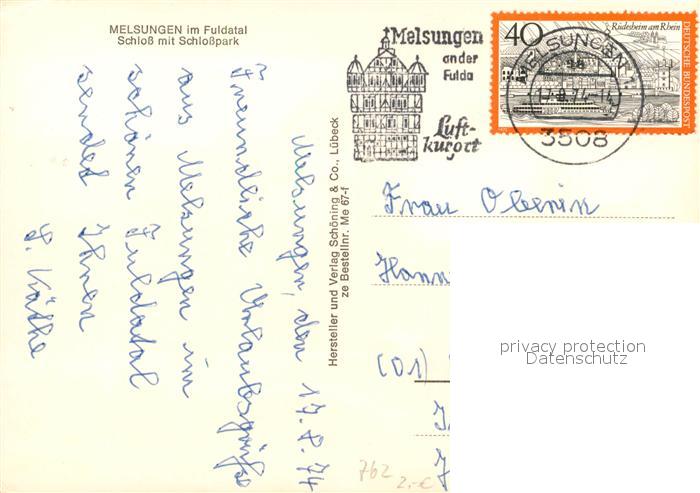 MELSUNGEN im Fuldatal
Schloß mit Schloßpark
Melsungen
an der
Fulda
Luft-
kurort
40
Rüdesheim am Rhein
DEUTSCHE BUNDESPOST
MELSUNGEN 1
3508
Melsungen, den 17.8.74
Freundliche Urlaubsgrüße
aus Melsungen im
schönen Fuldatal
sendet Ihnen
S. Käthe
Hersteller und Verlag Schöning & Co., Lübeck
ze Bestellnr. Me 67-f
Frau Oberin
Hann
(01)
privacy protection
Datenschutz
762
2,-€